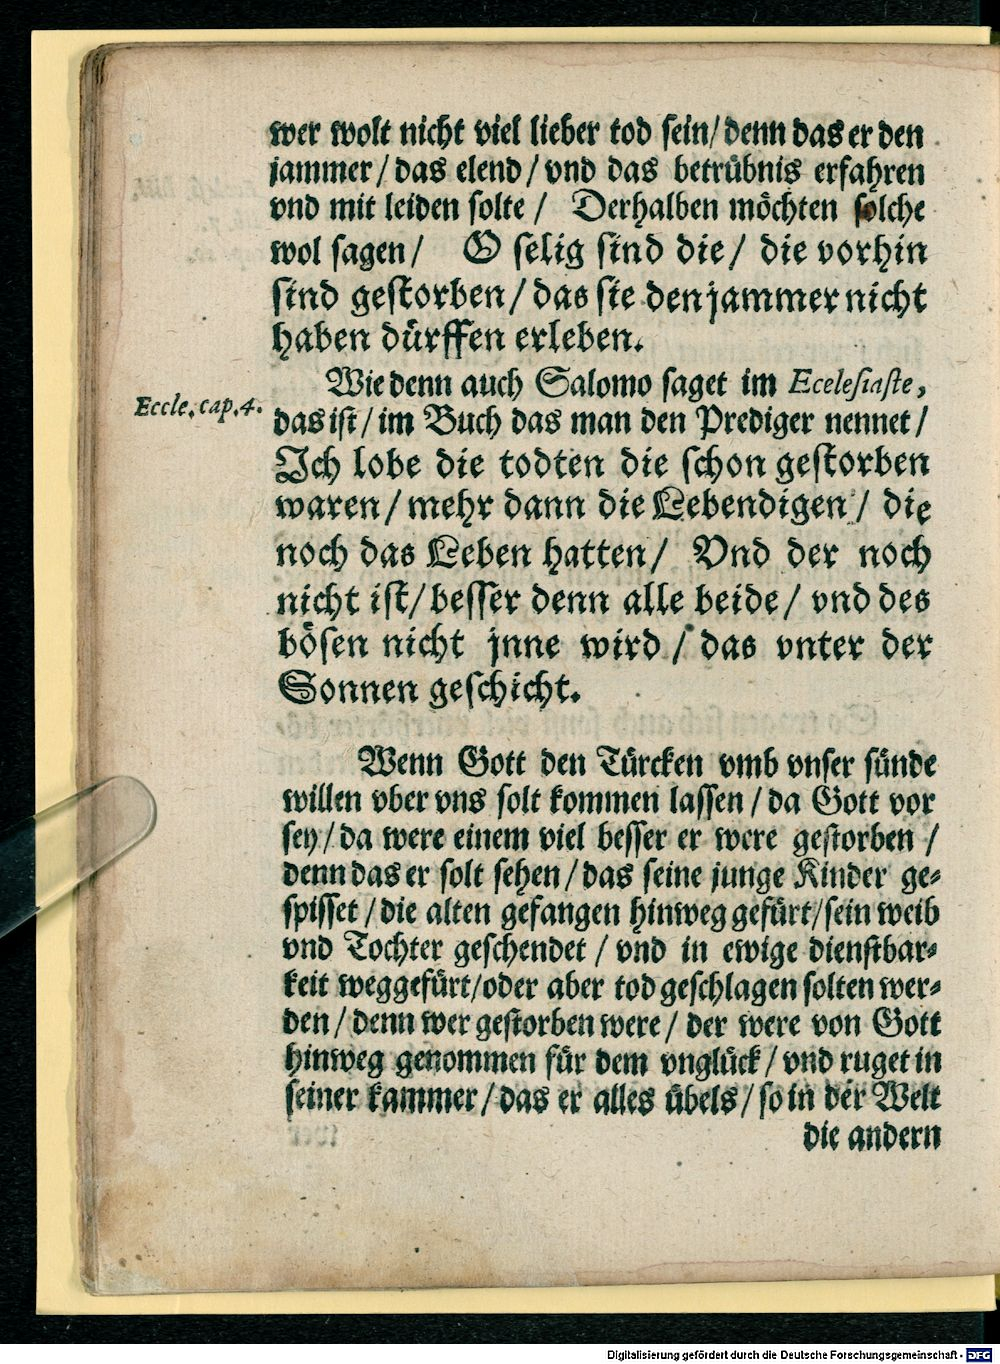 wer wolt nicht viel lieber tod sein/ denn das er den
jammer/ das elend/ vnd das betrübnis erfahren
vnd mit leiden solte/ Derhalben möchten sölche
wol sagen/ O selig sind die/ die vorhin
sind gestorben/ das sie den jammer nicht
haben dürffen erleben.
Wie denn auch Salomo saget im Ecelesiaste,
Eccle. cap. 4.
das ist/ im Buch das man den Prediger nennet/
Ich lobe die todten die schon gestorben
waren/ mehr dann die Lebendigen/ die
noch das Leben hatten/ Vnd der noch
nicht ist/ besser denn alle beide/ vnd des
bösen nicht jnne wird/ das vnter der
Sonnen geschicht.
Wenn Gott den Türcken vmb vnser sünde
willen vber vns solt kommen lassen/ da Gott vor
sey/ da were einem viel besser er were gestorben/
denn das er solt sehen/ das seine junge Kinder ge-
spisset/ die alten gefangen hinweg gefürt/ sein weib
vnd Tochter geschendet/ vnd in ewige dienstbar-
keit weggefürt/ oder aber tod geschlagen solten wer-
den/ denn wer gestorben were/ der were von Gott
hinweg genommen für dem vnglück/ vnd ruget in
seiner kammer/ das er alles übels/ so in der Welt
die andern
Digitalisierung gefördert durch die Deutsche Forschungsgemeinschaft - DFG